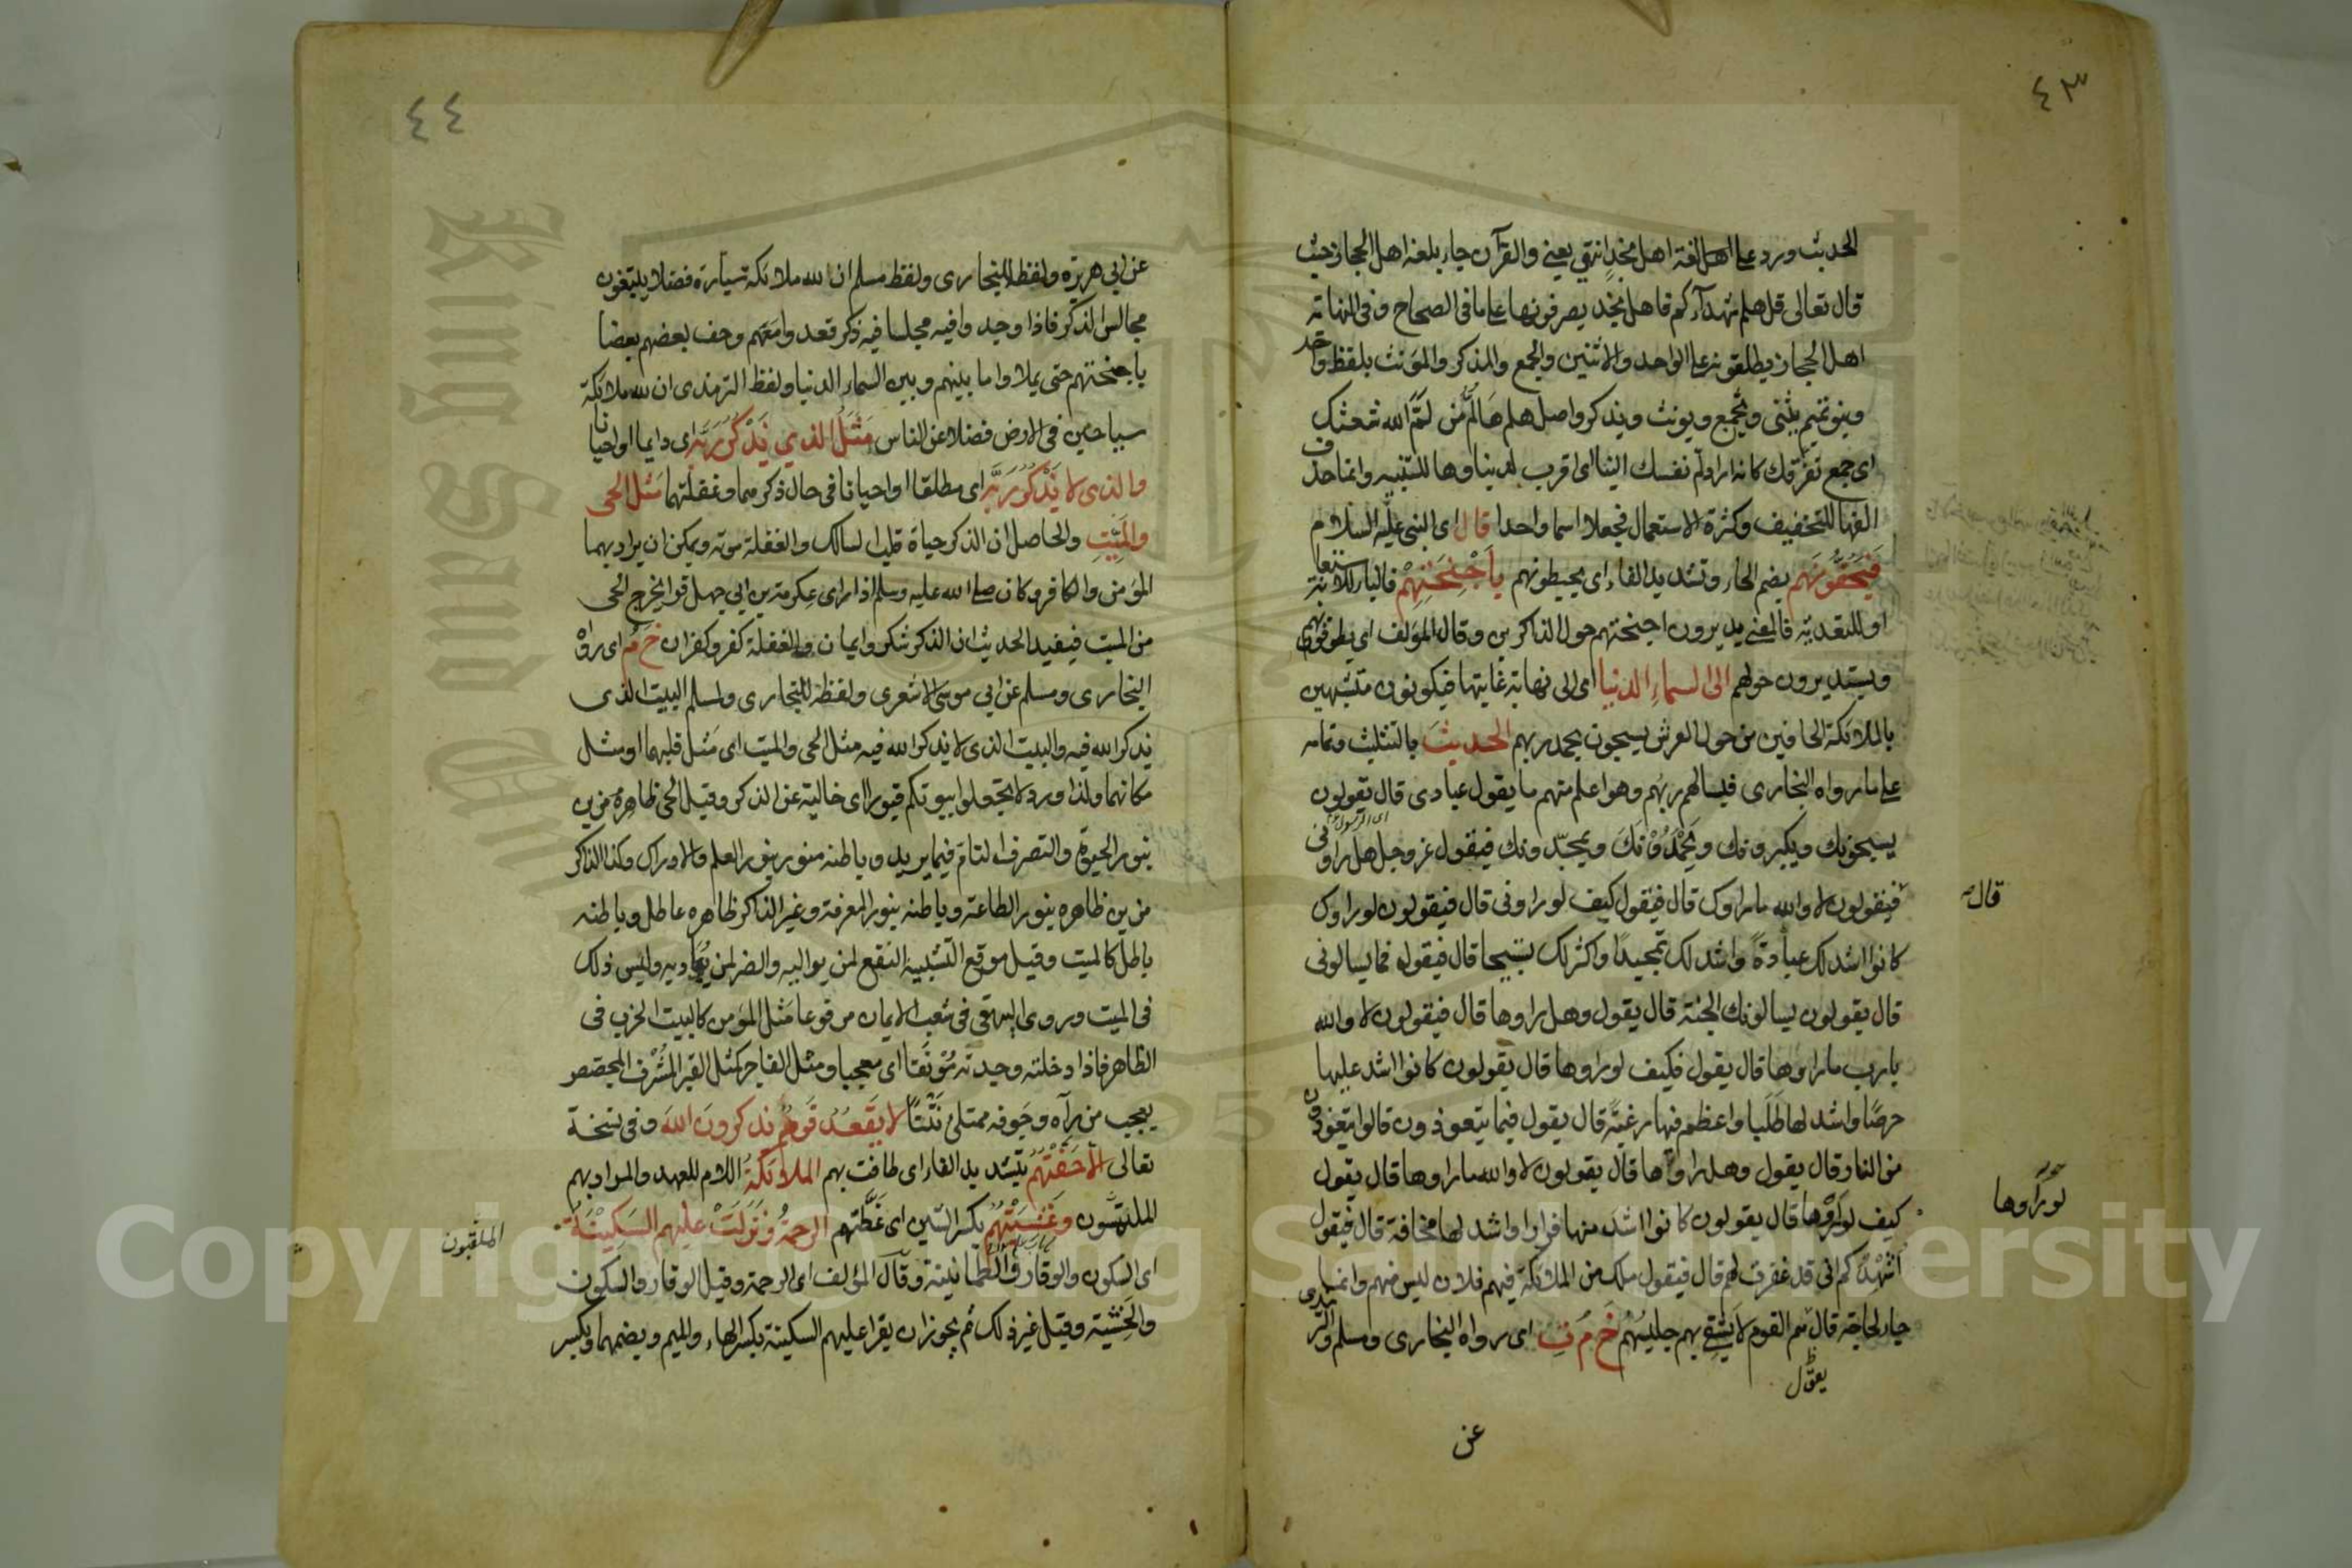 ٤٣
الحديث ورد على اهل لغة اهل نجد انتهى يعنى والقرآن جاء بلغة اهل الحجاز حيث
قال تعالى قل هلم شهداءكم فاهل نجد يصرفونها على ما فى الصحاح و فى النهاية
اهل الحجاز يطلقونه على الواحد والاثنين والجمع والمذكر والمؤنث بلفظ واحد
وبنو تميم يثنى ويجمع ويونث ويذكر واصل هلم هَا لُمَّ من لَمَّ الله شعثك
اى جمع تفرقك كانه اراد لُم نفسك الينا اى اقرب لدينا وها للتنبيه وانما حذف
الفها للتخفيف وكثرة الاستعمال فجعلا اسما واحدا قال اى النبى عليه السلام
فَيَحُفُّونَهم بضم الحاء وتشديد الفاء اى يحيطونهم بِأَجْنِحَتِهِمْ فالباء للاستعانة
او للتعدية فالمعنى يديرون اجنحتهم حول الذاكرين وقال المؤلف اى يطوفون بهم
ويستديرون حولهم الى السماءِ الدنيا اى الى نهاية غايتها فيكونون متشبهين
بالملائكة الحافين من حول العرش يسبحون بحمد ربهم الحديثَ بالتثليث وتمامه
على ما رواه البخارى فيسالهم ربهم وهو اعلم منهم ما يقول عبادى قال يقولون
يسبحونك ويكبرونك ويَحْمَدُوْنَكَ ويمجّدونك فيقول عز وجل هل راونى
فيقولون لا والله ما راوك قال فيقول كيف لو راونى قال فيقولون لو راوك
قال
كانوا اشد لك عبادةً واشد لك تمجيدًا واكثر لك تسبيحا قال فيقول فما يسالونى
قال يقولون يسالونك الجنة قال يقول وهل راوها قال فيقولون لا والله
يا رب ما راوها قال يقول فكيف لو راوها قال يقولون كانوا اشد عليها
حرصًا واشد لها طَلَبا واعظم فيها رغبةً قال يقول فيما يتعوذون قالوا يتعوذون
من النار قال يقول وهل راوها قال يقولون لا والله ما راوها قال يقول
كيف لو راوها قال يقولون كانوا اشد منها فرارا واشد لها مخافة قال فيقول
لو راوها
اُشْهِدُكم انى قد غفرت لهم قال فيقول ملك من الملائكة فيهم فلان ليس منهم وانما
جاء لحاجة قال هم القوم لا يَشْقى بهم جليسُهُم خ م ت اى رواه البخارى ومسلم والترمذى
عن
٤٤
عن ابى هريرة ولفظه للبخارى ولفظ مسلم ان لله ملائكة سيّارة فضلا يبتغون
مجالس الذكر فاذا وجدوا فيه مجلسا فيه ذكر قعدوا معهم وحف بعضهم بعضا
باجنحتهم حتى يملاوا ما بينهم وبين السماء الدنيا ولفظ الترمذى ان لله ملائكة
سياحين فى الارض فضلا عن الناس مَثَلُ الذى يَذْكُرُ رَبَّهُ اى دايما او احيانا
والذى لا يَذْكُرُ رَبَّهُ اى مطلقا او احيانا فى حال ذكرهما وغفلتهما مَثل الحى
والمَيِّتِ والحاصل ان الذكر حياة قلب السالك والغفلة موته ويمكن ان يراد بهما
المؤمن والكافر وكان صلى الله عليه وسلم اذا راى عكرمة بن ابى جهل قرا يخرج الحى
من الميت فيفيد الحديث ان الذكر شكر وايمان والغفلة كفر وكفران خ م اى رواه
البخارى ومسلم عن ابى موسى الاشعرى ولفظه للبخارى ولمسلم البيت الذى
يذكر الله فيه والبيت الذى لا يذكر الله فيه مثل الحى والميت اى مَثل قلبهما او مثل
مكانهما ولذا ورد لا تجعلوا بيوتكم قبورا اى خالية عن الذكر وقيل الحى ظاهره مزين
بنور الحيوة والتصرف التامّ فيما يريد وباطنه منور بنور العلم والادراك وكذا الذاكر
مزين ظاهره بنور الطاعة وباطنه بنور المعرفة وغير الذاكر ظاهره عاطل وباطنه
باطل كالميت وقيل موقع التشبيه النفع لمن يواليه والضر لمن يُعاديه وليس ذلك
فى الميت وروى البيهقى فى شعب الايمان مرفوعا مَثل المؤمن كالبيت الخرب فى
الظاهر فاذا دخلته وجدته مُوْنَقًا اى معجبا ومثل الفاجر كمثل القبر المُشْرف المجصص
يعجب من رآه وجَوفه ممتلئ نَتْنًا لا يَقْعُدُ قَوْمٌ يَذكرونَ اللهَ و فى نسخة
تعالى الا حَفَّتْهُم بتشديد الفاء اى طافت بهم الملائكةُ اللام للعهد والمراد بهم
الملتمسون وغَشِيَتْهُم بكسر الشين اى غَطَّتهم الرحمةُ ونَزَلَتْ عليهم السَكِيْنَةُ
الملقبون
اى السكون والوقار والطمانينة وقال المؤلف اى الرحمة وقيل الوقار والسكون
والخَشية وقيل غير ذلك ثم يجوز ان يقرا عليهم السكينة بكسر الهاء والميم وبضمهما وبكسر
Copyright © King Saud University